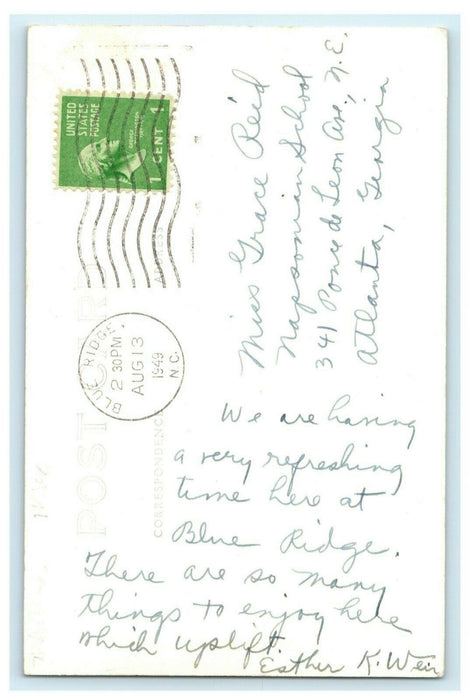 UNITED
STATES
POSTAGE
GEORGE
WASHINGTON
1 CENT 1
BLUE RIDGE
2 30PM
AUG 13
1949
N.C.
POST CARD
ADDRESS
CORRESPONDENCE
Miss Grace Reid
Napsonian School
341 Ponce de Leon Ave., N.E.
Atlanta, Georgia
We are having
a very refreshing
time here at
Blue Ridge.
There are so many
things to enjoy here
which uplift.
Esther K. Weir